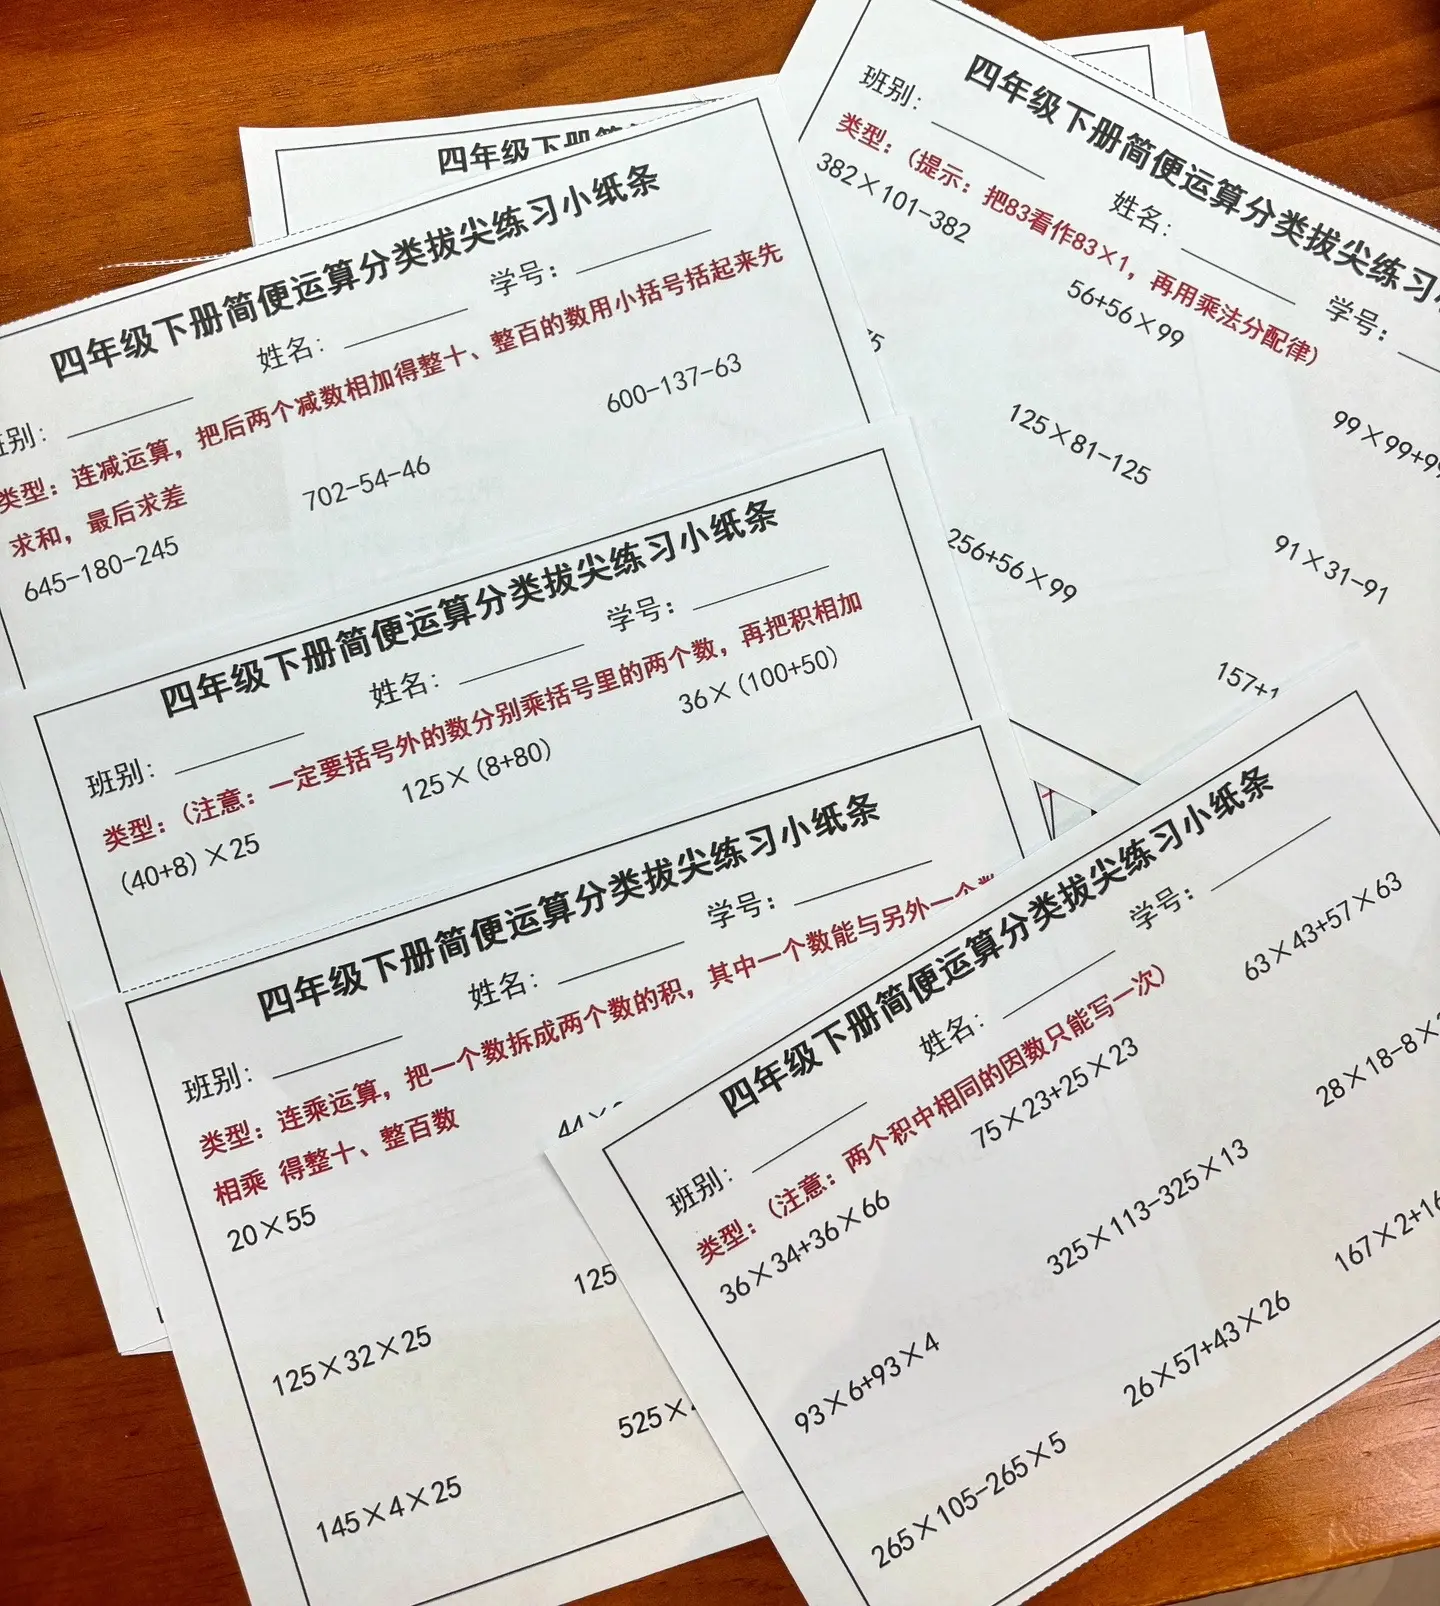 四年级下册简
四年级下册简便运算分类拔尖练习小纸条
班别: 姓名: 学号:
类型：连减运算，把后两个减数相加得整十、整百的数用小括号括起来先
求和，最后求差
645-180-245 702-54-46 600-137-63
四年级下册简便运算分类拔尖练习小纸条
班别: 姓名: 学号:
类型：（注意：一定要括号外的数分别乘括号里的两个数，再把积相加
(40+8)×25 125×(8+80) 36×(100+50)
四年级下册简便运算分类拔尖练习小纸条
班别: 姓名: 学号:
类型：连乘运算，把一个数拆成两个数的积，其中一个数能与另外一个数
相乘 得整十、整百数
20×55 44×
125×32×25 125
145×4×25 525×
四年级下册简便运算分类拔尖练习
班别: 姓名: 学号:
类型：（提示：把83看作83×1，再用乘法分配律）
382×101-382 56+56×99 99×99+99
125×81-125 91×31-91
256+56×99 157+1
5
四年级下册简便运算分类拔尖练习小纸条
班别: 姓名: 学号:
类型：（注意：两个积中相同的因数只能写一次）
36×34+36×66 75×23+25×23 63×43+57×63
93×6+93×4 325×113-325×13 28×18-8×
265×105-265×5 26×57+43×26 167×2+16